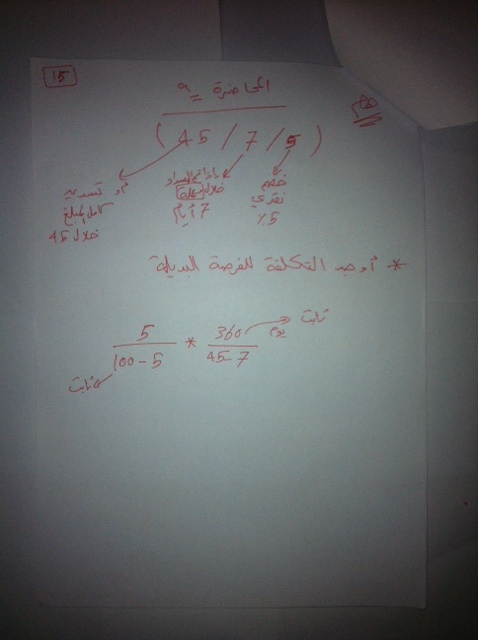 15
المحاضرة 9
هام
( 45 / 7 / 5 )
خصم
نقدي
5%
إذا تم السداد
خلال مهلة
7 أيام
أو تسديد
كامل المبلغ
خلال 45
* أوجد التكلفة للفرصة البديلة
5 / 100 - 5 * 360 / 45 - 7
يوم
ثابت
ثابت